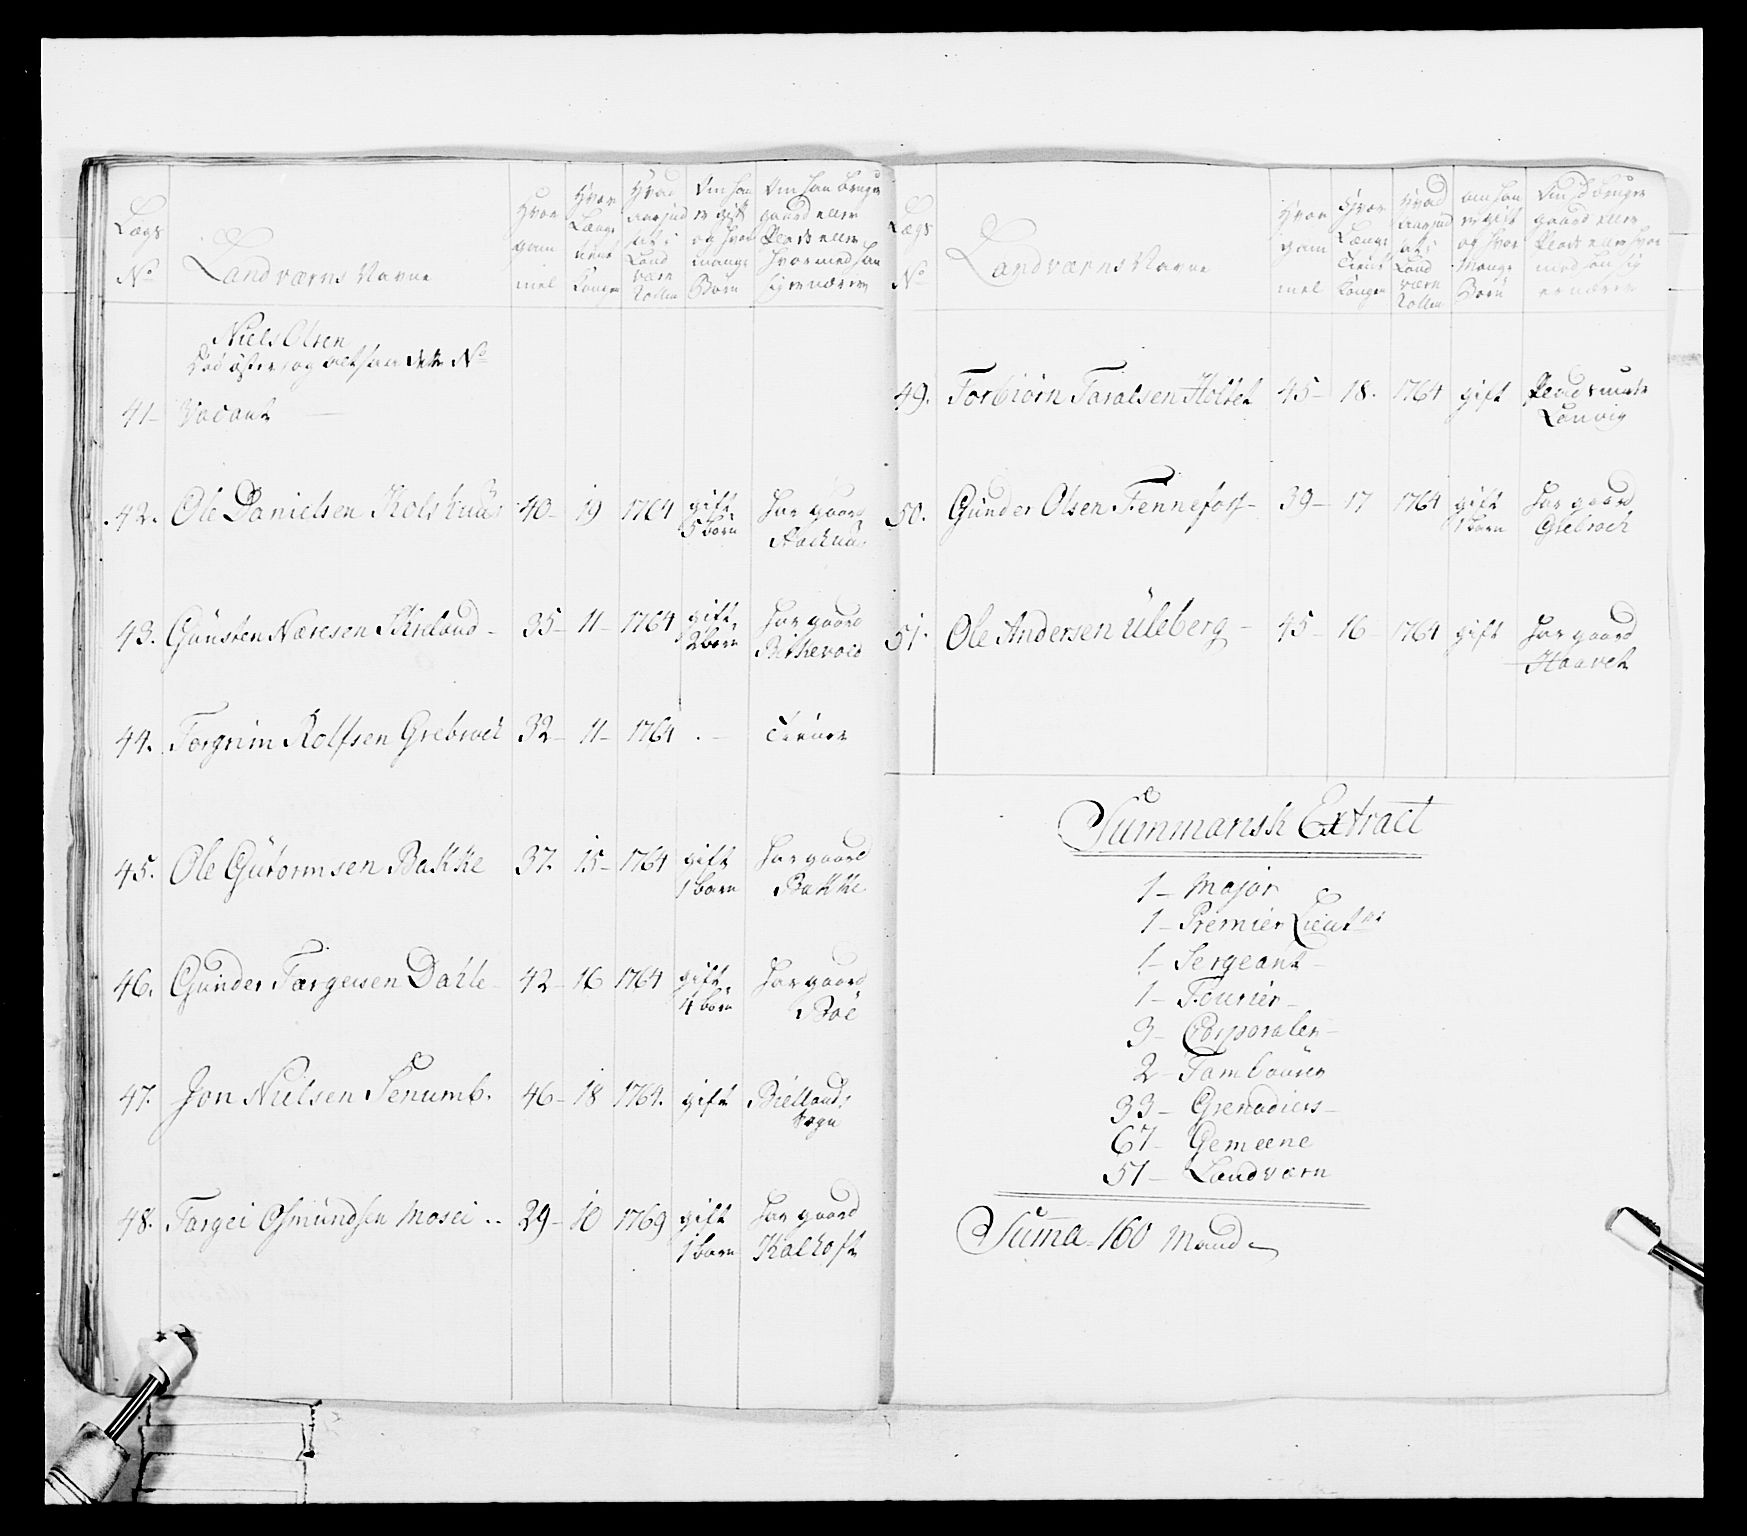 Lægs
No
Landværns Navne
Hvor
gam
mel
Hvor
Længe
tient
Kongen
Hvad
Aar ind
sat i
Land
værn
Rollen
Om han
er gift
og hvor
mange
Børn
Om han bruger
gaard eller
Plads eller
hvormed han
sig ernærer
Niels Olsen
No
41 Vacant
42. Ole Danielsen 40 19 1764 gift 5 børn har gaard
43. Gunsten Næresen Skreland 35 11 1764 gift 2 børn har gaard Birkevold
44. Torgrim Rolfsen Grebrock 32 11 1764 Tiener
45. Ole Gutormsen Bakke 37. 15 1764 gift 1 barn har gaard Bakke
46. Gunder Targeisen Dahle 42 16 1764 gift 4 børn har gaard Böe
47. Jon Nielsen Senumb. 46 18 1764. gift Biellands Sogn
48. Targei Osmundsen Mosei 29 10 1769 gift 1 barn har gaard
Lægs
No
Landværns Navne
Hvor
gam
mel
Hvor
Længe
Tient
Kongen
Hvad
Aar ind
sat i
Land
værn
Rollen
om han
er gift
og hvor
Mange
Børn
Om h bruger
gaard eller
Plads eller hvor
med han sig
ernærer
49. Torbiörn Taralsen Holtet 45 18. 1764 gift Plads
50. Gunder Olsen Fennefoss 39 17 1764 gift 1 barn har gaard Grebrock
51. Ole Andersen Uleberg 45 16 1764 gift har gaard Haavet
Summarisk Extract
1 Major
1 Premier Lieutnt
1 Sergeant
1 Fourier
3 Corporaler
2 Tambourer
33 Grenadiers
67 Gemeene
51 Landværn
Summa 160 Mand